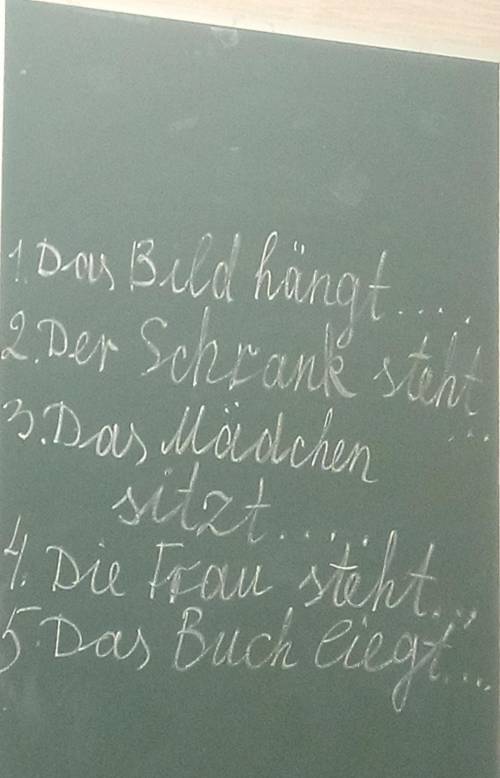 1. Das Bild hängt....
2. Der Schrank steht
...
3. Das Mädchen
sitzt.....
4. Die Frau steht...
5. Das Buch liegt....